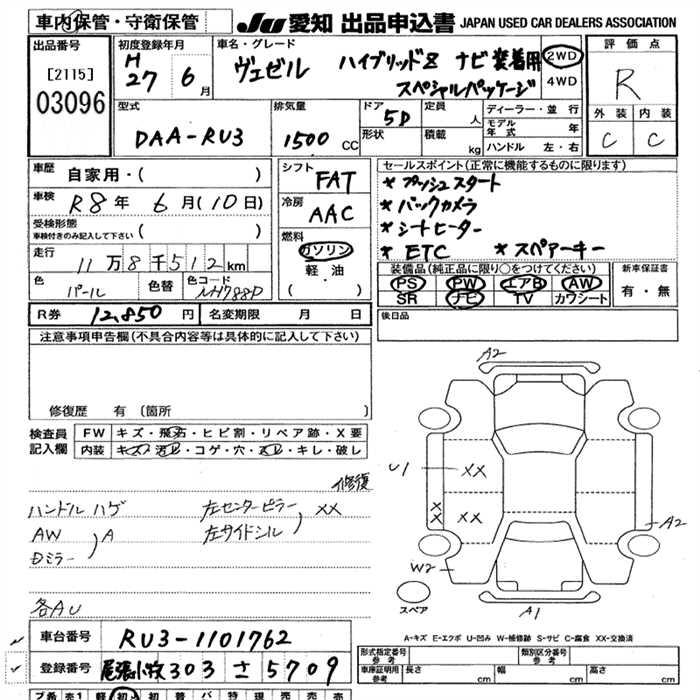 車内保管・守衛保管
JU 愛知 出品申込書 JAPAN USED CAR DEALERS ASSOCIATION
出品番号
[2115]
03096
初度登録年月
H
27年 6月
車名・グレード
ヴェゼル ハイブリッドZ ナビ装着用
スペシャルパッケージ
2WD
4WD
評価点
R
外装 内装
C C
型式
DAA-RU3
排気量
1500 CC
ドア
5D
形状
定員
人
積載
kg
ディーラー・並行
モデル年式 年
ハンドル 左・右
車歴
自家用・( )
車検
R8年 6月(10日)
受検形態
車検付きのみ記入して下さい ( )
走行
11万8千512km
色
パール
色替
色コード
NH788P
シフト
FAT
冷房
AAC
燃料
ガソリン
軽・油
( )
セールスポイント(正常に機能するものに限ります)
* プッシュスタート
* バックカメラ
* シートヒーター
* ETC * スペアーキー
装備品(純正品に限り○をつけてください)
PS PW エアB AW
SR ナビ TV カワシート
新車保証書
有・無
R券 12,850円
名変期限 月 日
後日品
注意事項申告欄(不具合内容等は具体的に記入して下さい)
修復歴 有(箇所 )
検査員記入欄
FW キズ・飛石・ヒビ割・リペア跡・X要
内装 キズ・汚れ・コゲ・穴・スレ・キレ・破レ
修復
ハンドル ハゲ 左センターピラー XX
AW A 左サイドシル
Dミラー
各AU
A2
U1
XX
XX
XX
A2
W2
A1
スペア
A-キズ E-エクボ U-凹み W-補修跡 S-サビ C-腐食 XX-交換済
車台番号 RU3-1101762
登録番号 尾張小牧 303 さ 5709
形式指定番号
参考
類別区分番号
参考
車庫証明用
参考
長さ cm 幅 cm 高さ cm